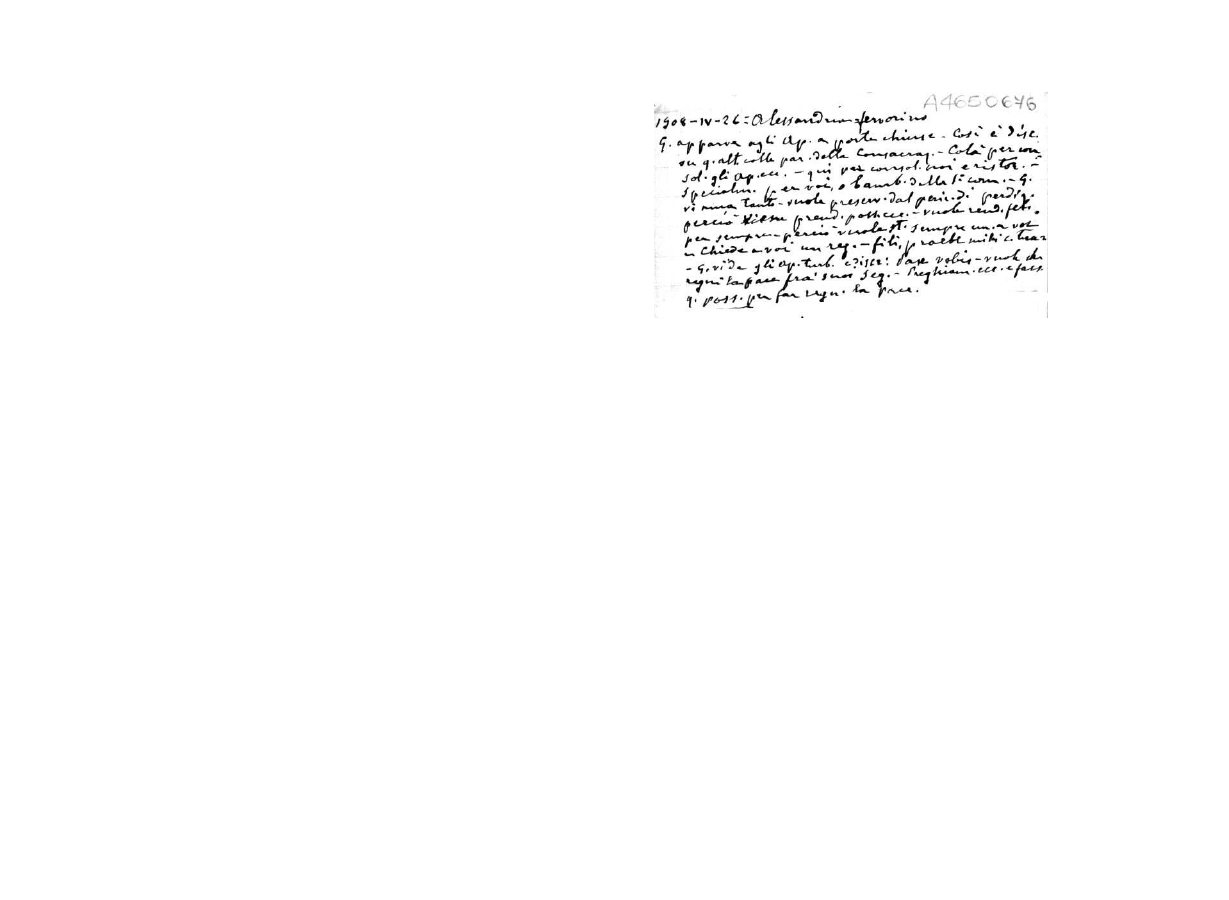 A4650676
1908-IV-26=Alessandria=fervorino
G. apparve agli Ap. a porte chiuse - Così è disc.
su q. alt. colle par. della Consacraz. - Colà per con
sol. gli ap. ecc. - qui per consol. noi e ristor. -
specialm. per voi, o bamb. della 1ª com. - G.
vi ama tanto - vuole preserv. dal peric. di perdiz.
perciò viene prend. possess. - vuole rend. felic.
per sempre - perciò vuole st. sempre un. a voi
e chiede a voi un reg. - fili, praebe mihi c. tuum
- G. vide gli ap. turb. e disse: Pax vobis - vuole che
regni la pace fra i suoi seg. - Preghiam. ecc. e facc.
q. poss. per far regn. la pace.